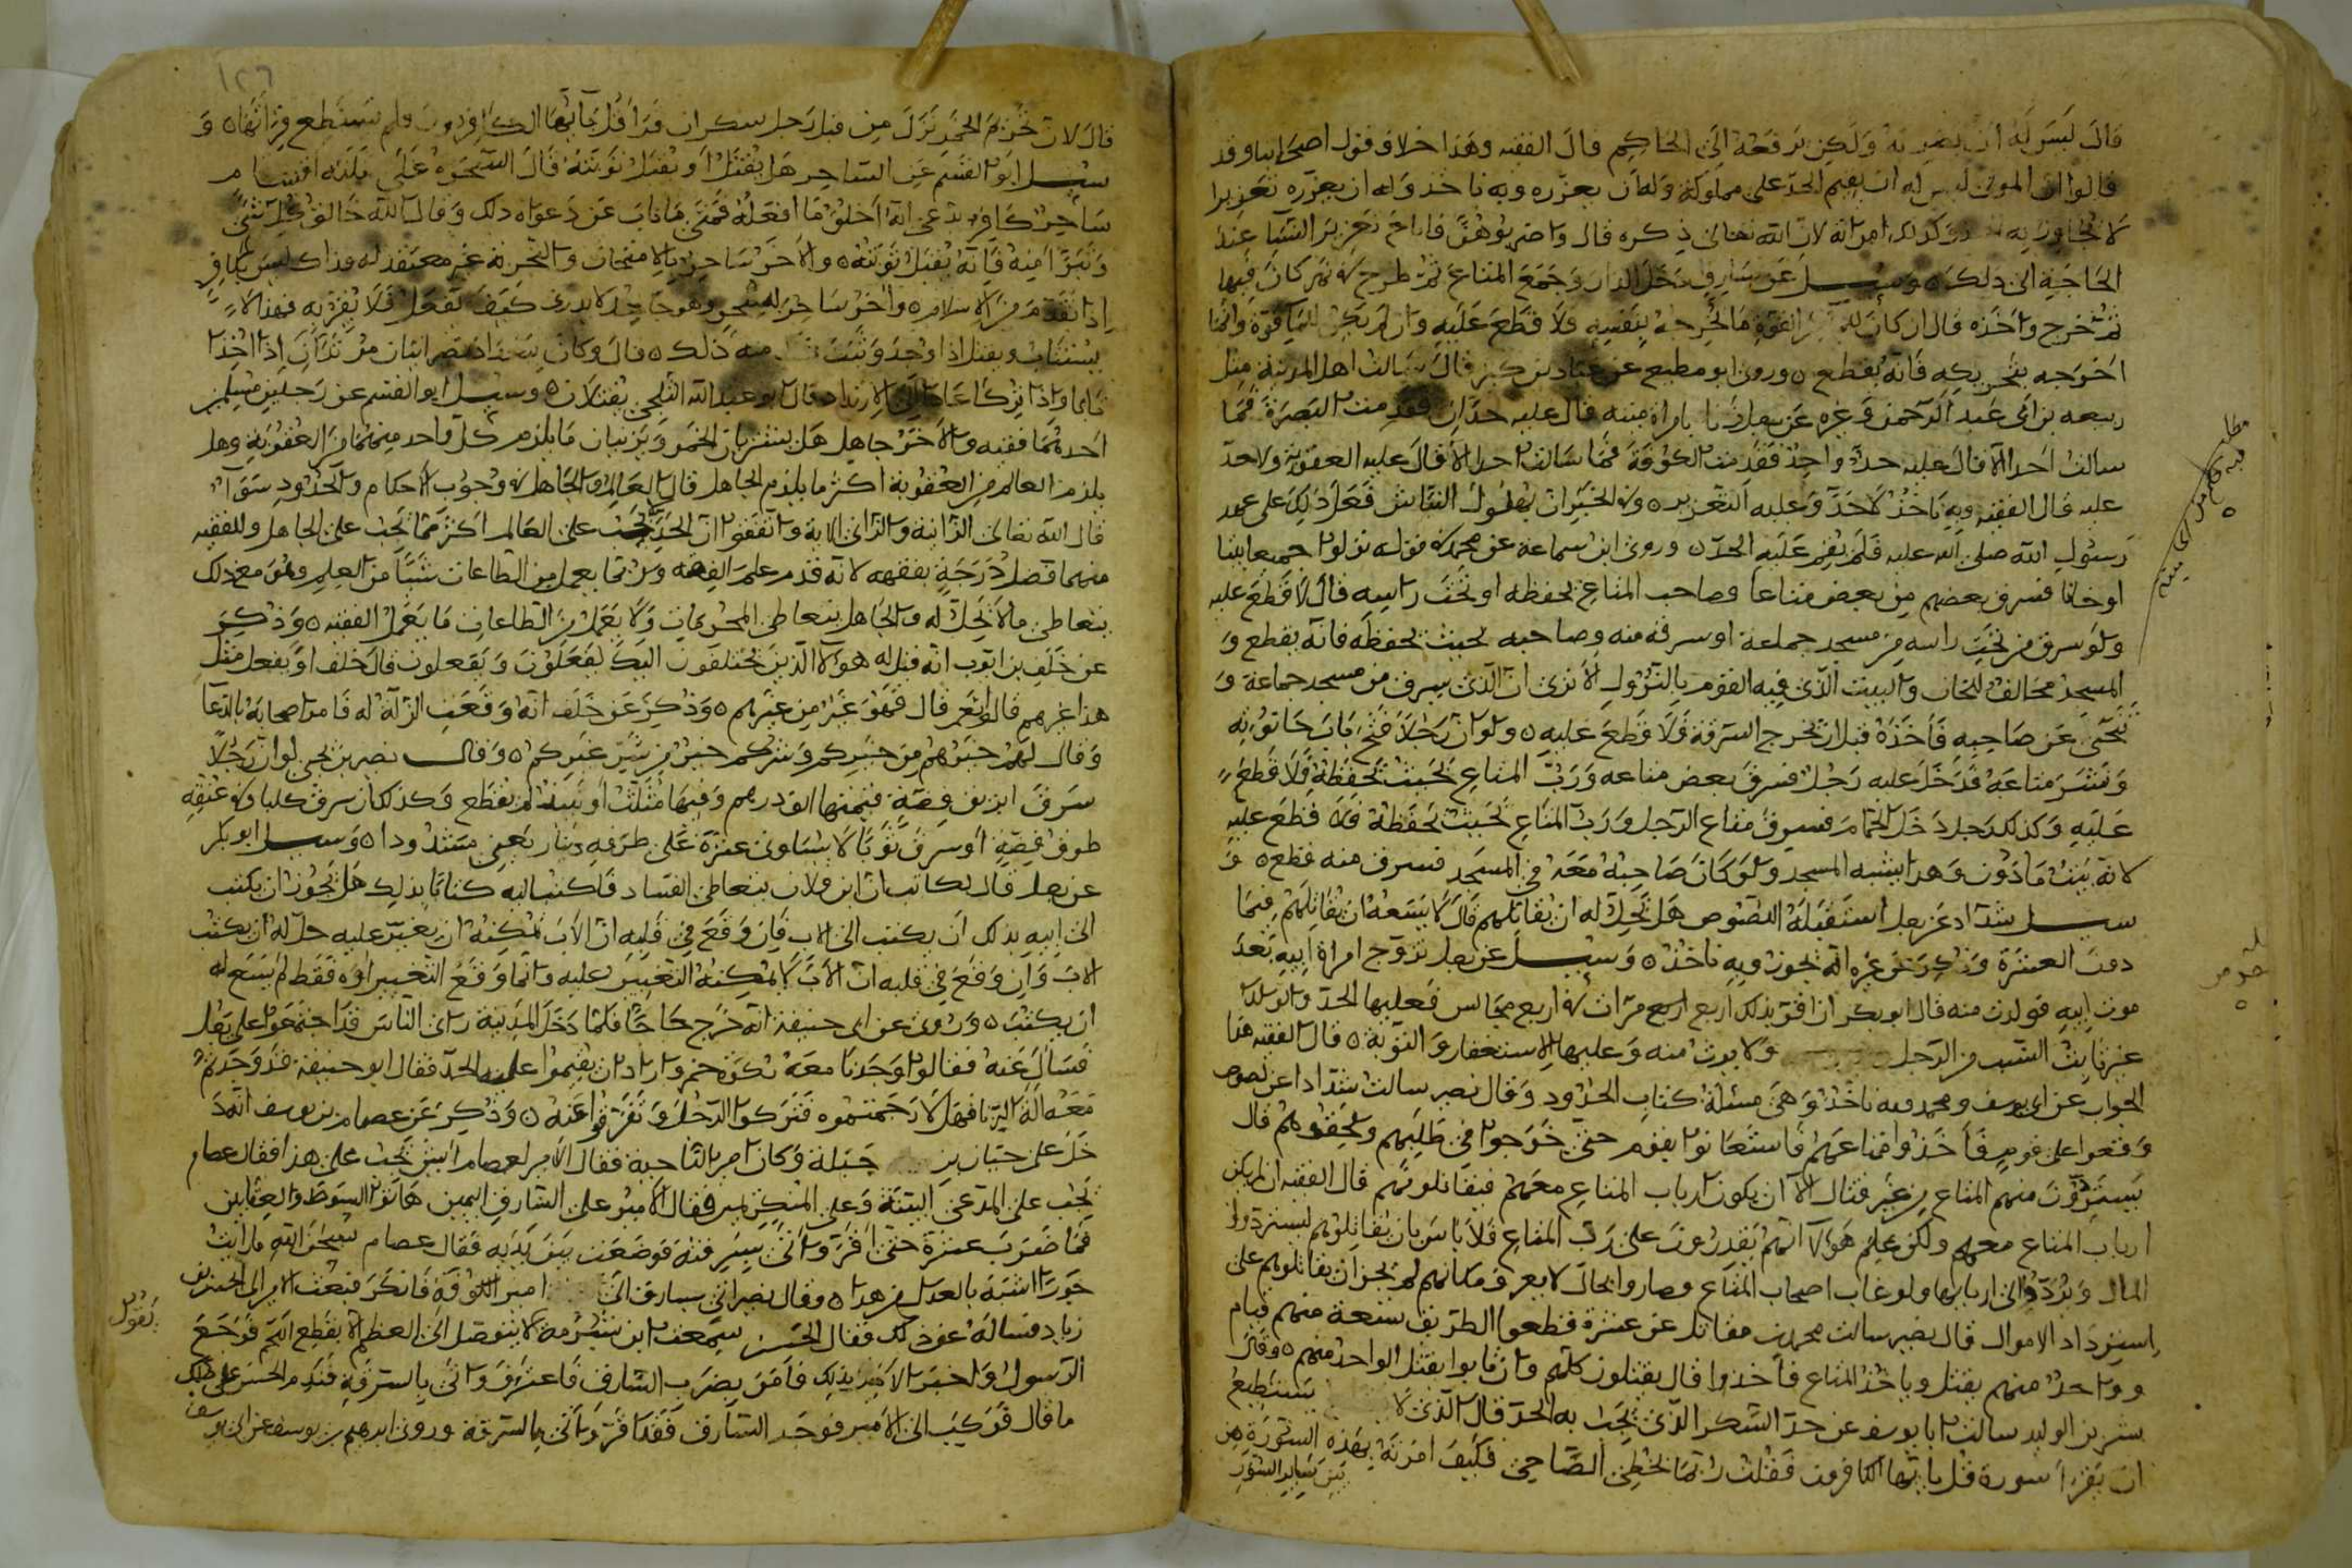 قال ليس له ان يضربه ولكن يرفعه الى الحاكم قال الفقيه وهذا خلاف قول اصحابنا وقد
قالوا ان المولى ليس له ان يقيم الحد على مملوكه وله ان يعزره وبه ناخذ وله ان يعزره تعزيرا
لا يجاوز به وكذلك امراته لان الله تعالى ذكره قال واضربوهن فاباح تعزير النساء عند
الحاجة الى ذلك ه وسئل عن سارق دخل الدار وجمع المتاع ثم طرح في نهر كان فيها
ثم خرج واخذه قال ان كان القوة ما يخرجه بنفسه فلا قطع عليه وان لم يكن للماء قوة وانما
اخرجه بتحريكه فانه يقطع ه وروى ابو مطيع عن عباد بن كثير قال سالت اهل المدينة مثل
ربيعه بن ابي عبد الرحمن وغيره عن رجل زنا بامراة ميتة قال عليه حدان فقدمت البصرة فما
سالت احدا الا قال عليه حد واحد فقدمت الكوفة فما سالت احدا الا قال عليه العقوبة ولا حد
عليه قال الفقيه وبه ناخذ لا حد وعليه التعزير ه وفي الخبر ان فعل ذلك على عهد
رسول الله صلى الله عليه فلم يقم عليه الحد ه وروى ابن سماعة عن محمد في قوم نزلوا جميعا بيتا
او خانا فسرق بعضهم من بعض متاعا وصاحب المتاع يحفظه او تحت راسه قال لا قطع عليه
ولو سرق من تحت راسه من مسجد جماعة او سرقه منه وصاحبه بحيث يحفظه فانه يقطع و
المسجد مخالف للخان والبيت الذي فيه القوم بالنزول الا ترى ان الذي يسرق من مسجد جماعة و
تنحى عن صاحبه فاخذه قبل ان تخرج السرقة فلا قطع عليه ه ولو ان رجلا فتح باب حانوته
ونشر متاعه فدخل عليه رجل فسرق بعض متاعه ورب المتاع بحيث يحفظه فلا قطع
عليه وكذلك رجل دخل الحمام فسرق متاع الرجل ورب المتاع بحيث يحفظه فلا قطع عليه
لانه بيت ماذون وهذا يشبه المسجد ولو كان صاحبه معه في المسجد فسرق منه قطع ه و
سئل شداد عن رجل استقبله اللصوص هل يحل له ان يقاتلهم قال لا يسعه ان يقاتلهم فيما
دون العشرة وذكر عن غيره انه يجوز وبه ناخذ ه وسئل عن رجل تزوج امراة ابيه بعد
موت ابيه فولدت منه قال ابو بكر ان اقر بذلك اربع مرات في اربع مجالس فعليها الحد والولد
يثبت النسب من الرجل ولا يورث منه وعليها الاستغفار والتوبة ه قال الفقيه هذا
الجواب عن ابي يوسف ومحمد وبه ناخذ وهي مسئلة كتاب الحدود وقال نصر سالت شدادا عن لصوص
وقعوا على قوم فاخذوا متاعهم فاستعانوا بقوم حتى خرجوا في طلبهم ولحقوهم قال
يستردون منهم المتاع من غير قتال الا ان يكون ارباب المتاع معهم فيقاتلونهم قال الفقيه ان لم يكن
ارباب المتاع معهم ولكن علم هؤلاء انهم يقدرون على رب المتاع فلا باس بان يقاتلوهم ليستردوا
المال ويردوا الى اربابها ولو غاب اصحاب المتاع وصاروا بحال لا يعرف مكانهم لم يجز ان يقاتلوهم على
استرداد الاموال قال نصر سالت محمد بن مقاتل عن عشرة قطعوا الطريق تسعة منهم قيام
وواحد منهم يقتل وياخذ المتاع فاخذوا قال يقتلون كلهم وان تابوا يقتل الواحد منهم ه وقال
بشر بن الوليد سالت ابا يوسف عن حد السكر الذي يجب به الحد قال الذي لا يستطيع
ان يقرا سورة قل يا ايها الكافرون فقلت ربما يخطئ الصاحي فكيف امرته بهذه السورة من
بين ساير السور
قال لان تحريم الخمر نزل من قبل رجل سكران قرا قل يا ايها الكافرون ولم يستطع قراتها ه و
سئل ابو القسم عن الساحر هل يقتل او يقبل توبته قال السحرة على ثلثه اقسام
ساحر كافر يدعي انه اخلق ما افعله فمتى ما تاب عن دعواه ذلك وقال الله خالق كل شيء
وتبرا منه فانه يقبل توبته ه والاخر ساحر بالامتحان والتجربة غير معتقد له وذاك ليس بكافر
اذا تقدم من الاسلام ه واخر ساحر يسحر وهو جاحد لا يدري كيف يفعل فلا يقر به فهذا لا
يستتاب ويقتل اذا وجد وثبت منه ذلك ه قال وكان نصرانيان مرتدان اذا اخذا
تابا واذا تركا عادا الى الارتداد قال ابو عبد الله الثلجي يقتلان ه وسئل ابو القسم عن رجلين مسلمين
احدهما فقيه والاخر جاهل هل يشربان الخمر ويزنيان ما يلزم كل واحد منهما من العقوبة وهل
يلزم العالم من العقوبة اكثر ما يلزم الجاهل قال العالم والجاهل في وجوب الاحكام والحدود سوآء
قال الله تعالى الزانية والزاني الاية واتفقوا ان الحد يجب على العالم اكثر مما يجب على الجاهل وللفقيه
منهما فضل درجة بفقهه لانه قدم علم الفقه ولربما يعمل من الطاعات شيئا من العلم وهو مع ذلك
يتعاطى ما لا يحل له والجاهل يتعاطى المحرمات ولا يعمل من الطاعات ما يعمل الفقيه ه وذكر
عن خلف بن ايوب انه قيل له هؤلا الذين يختلفون اليك يفعلون ويفعلون قال خلف او يفعل مثل
هذا غيرهم قالوا نعم قال فهو غير من غيرهم ه وذكر عن خلف انه وقعت الزلة له فامر اصحابه بالدعا
وقال لهم خيرهم من خيركم وشركم خير من شر غيركم ه وقال نصر بن يحيى لو ان رجلا
سرق ابريق فضة قيمتها الف درهم وفيها مثلث او نبيذ لم يقطع وكذلك ان سرق كلبا وفي عنقه
طوق فضة او سرق ثوبا لا يساوي عشرة على طرفه دينار يعني مشدودا ه وسئل ابو بكر
عن رجل قال لكاتب ان ابن فلان يتعاطى الفساد فاكتب اليه كتابا بذلك هل يجوز ان يكتب
الى ابيه بذلك ان يكتب الى الاب فان وقع في قلبه ان الاب يمكنه ان يغير عليه حل له ان يكتب
الاب وان وقع في قلبه ان الاب لا يمكنه التغيير عليه وانما وقع التخبير اوه فقط لم يسع له
ان يكتب ه وروى عن ابي حنيفة انه خرج حاجا فلما دخل المدينة راى الناس قد اجتمعوا على رجل
فسال عنه فقالوا وجدنا معه ركوة خمر وارادان يقيموا عليه الحد فقال ابو حنيفة قد وجدتم
معه الة الزنا فهلا رجمتموه فتركوا الرجل وتفرقوا عنه ه وذكر عن عصام بن يوسف انه د
خل على حيان بن جبلة وكان امير الناحية فقال الامير لعصام ايش يجب على هذا فقال عصام
يجب على المدعي البينة وعلى المنكر اليمين فقال الامير على السارق اليمين هاتوا السوط والعقابين
فما ضرب عشرة حتى اقر واتى بسرقته فوضعت بين يديه فقال عصام سبحان الله ما رايت
جورا اشبه بالعدل من هذا ه وقال نصر اتي بسارق الى امير الكوفة فانكر فبعث الامير الى الحسن بن
زياد فساله عن ذلك فقال الحسن سمعت ابن شبرمة يقول لا يتوصل الى العظم الا بقطع اللحم فرجع
الرسول واخبر الامير بذلك فامر بضرب السارق فاعترف واتى بالسرقة فندم الحسن على ذلك
ما قال فركب الى الامير فوجد السارق فقد اقر واتى بالسرقة وروى ابرهيم بن يوسف عن ابي يوسف